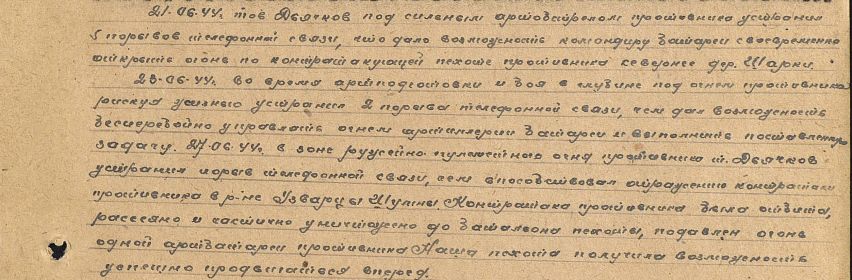 21.06.44г. тов Дьячков под сильным артобстрелом противника устранил
5 порывов телефонной связи, что дало возможность командиру батареи своевременно
открыть огонь по контратакующей пехоте противника севернее дер. Шарки.
23.06.44г. во время артподготовки и боя в глубине под огнем противника
рискуя жизнью устранил 2 порыва телефонной связи, чем дал возможность
бесперебойно управлять огнем артиллерии батареи и выполнить поставленную
задачу. 27.06.44г. в зоне ружейно-пулеметного огня противника т. Дьячков
устранил порыв телефонной связи, чем способствовал отражению контратаки
противника в р-не Узварцы Контратака противника была отбита,
рассеяно и частично уничтожено до батальона пехоты, подавлен огонь
одной артбатареи противника Наша пехота получила возможность
успешно продвигаться вперед.